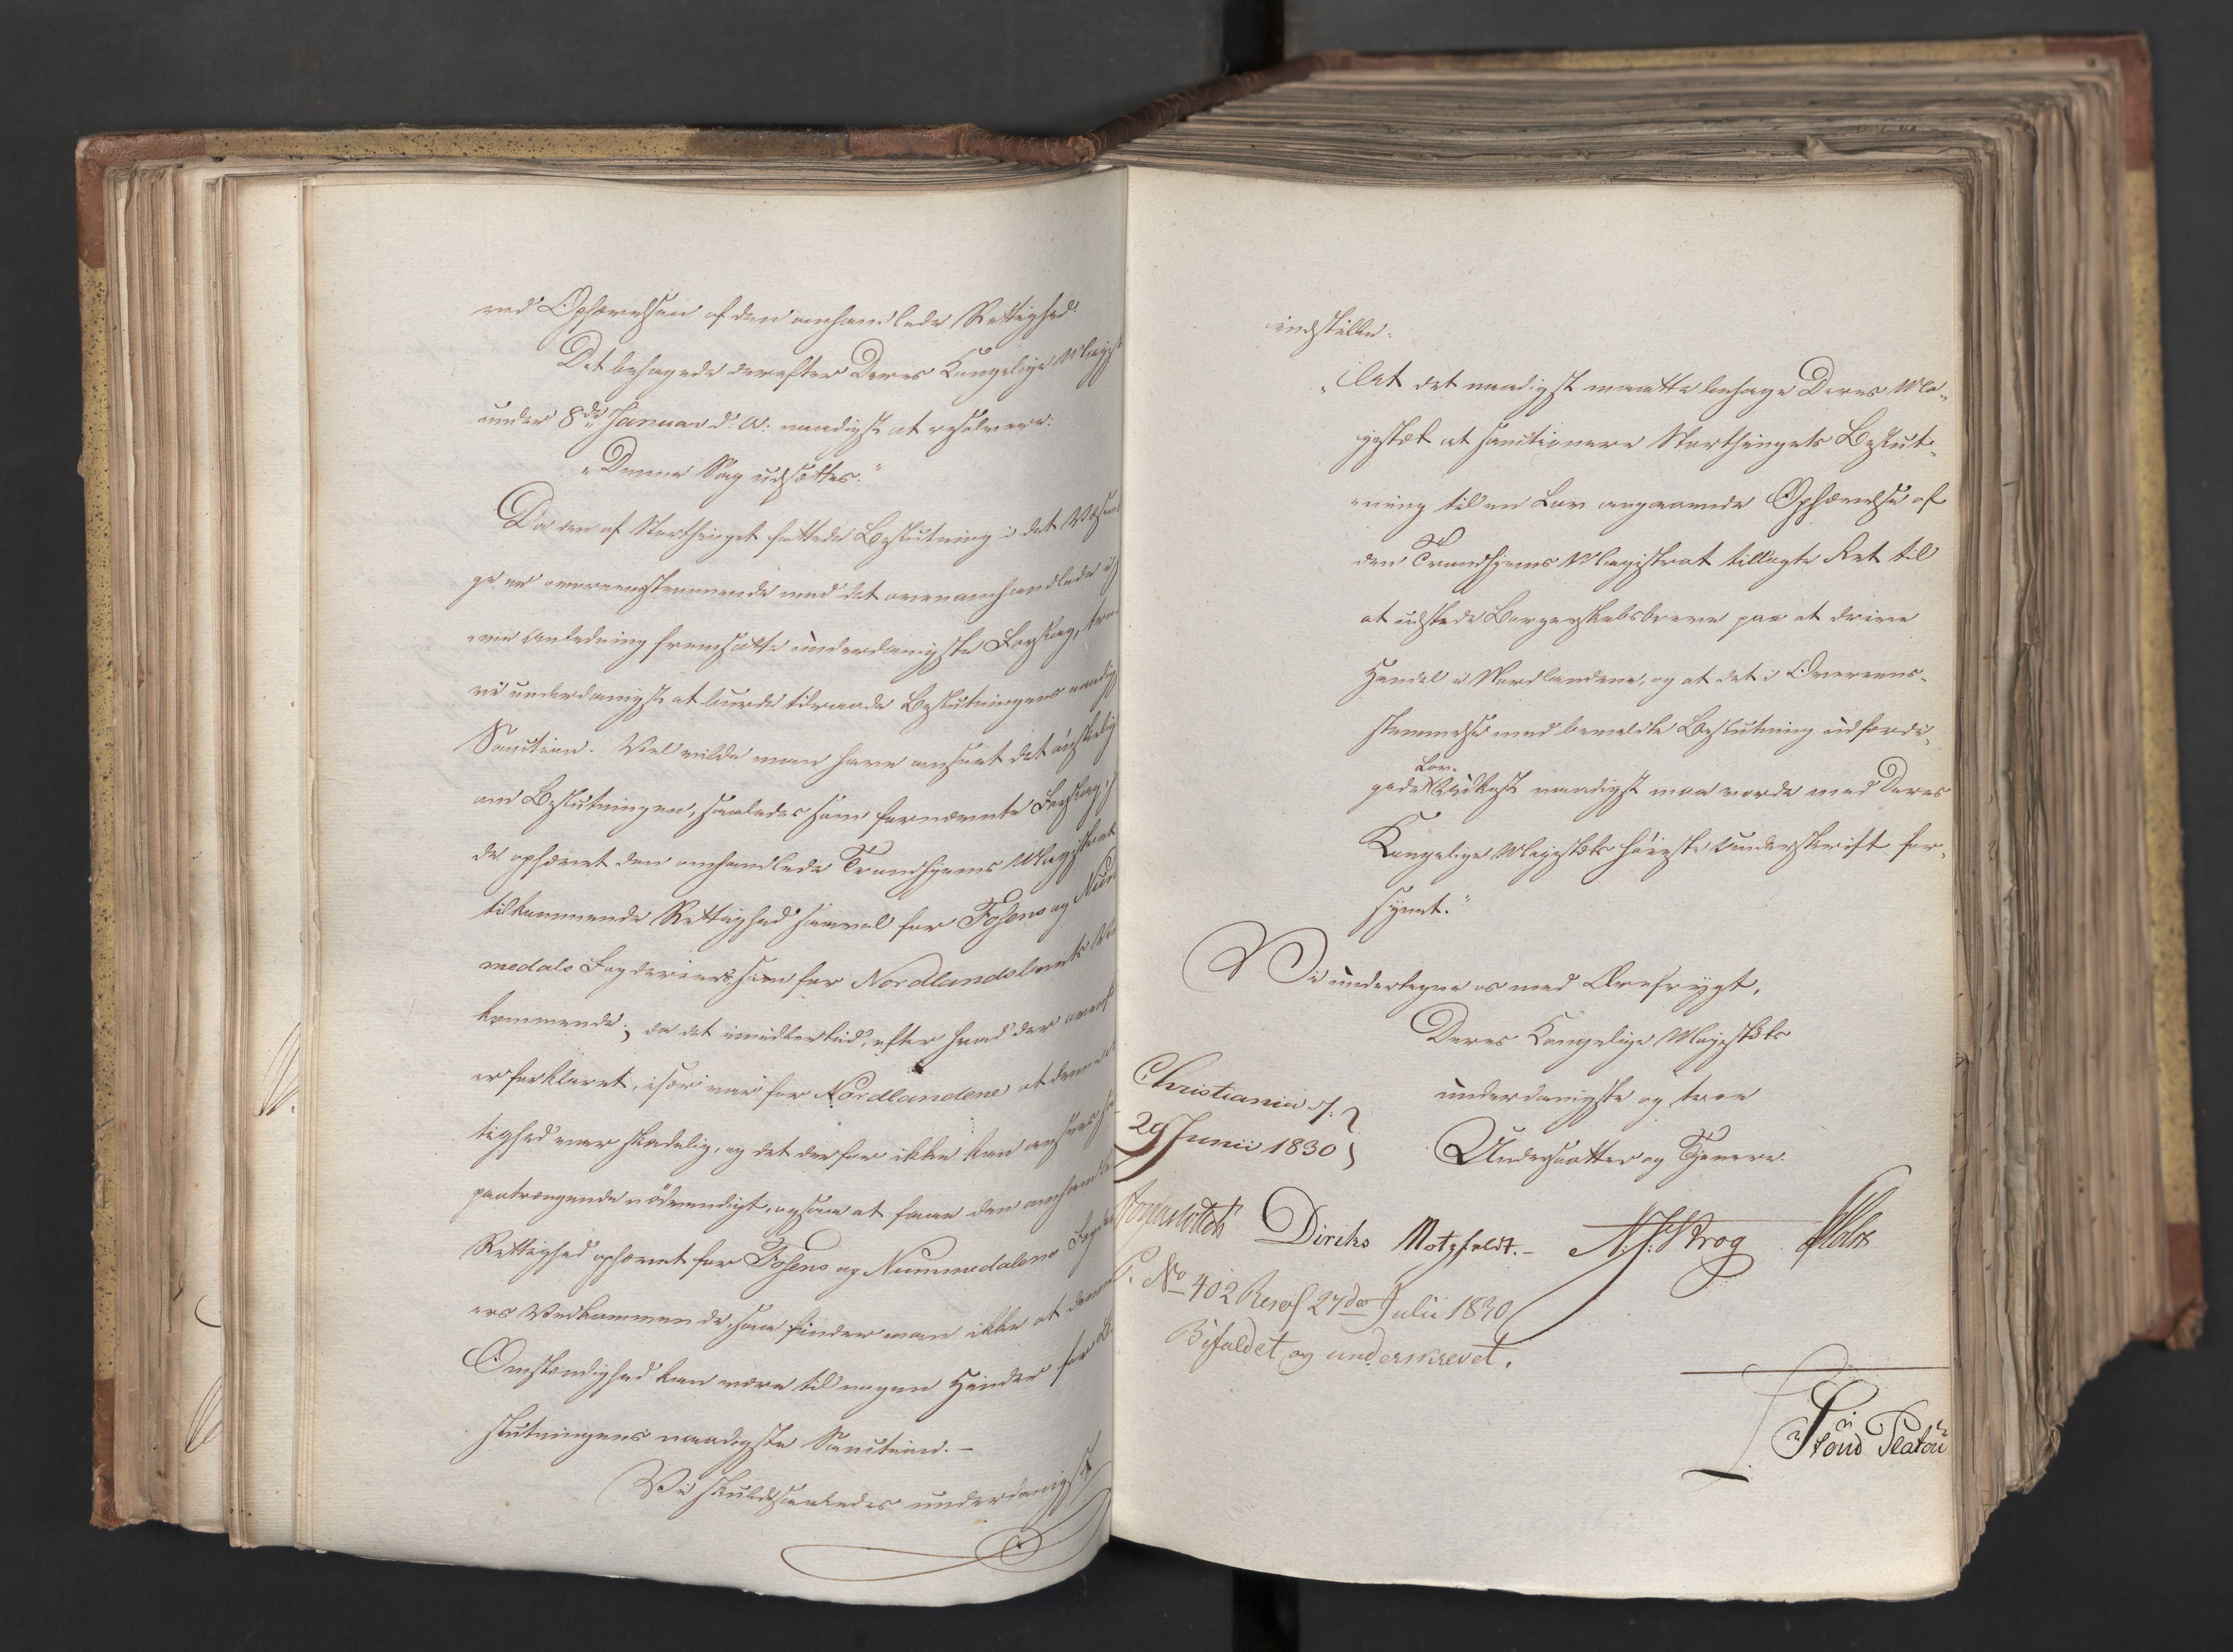 ved Ophævelsen af den omhandlede Rettighed.
Det behagede derefter Deres Kongelige Majest
under 8de Januar d: A: naadigst at resolvere:
"Denne Sag udsættes."
Da den af Storthinget fattede Beslutning i det Væsent
ge er overeensstemmende med det ovenomhandlede i
Anledning fremsatte underdanigste Forslag, troe
vi underdanigst at burde tilraade Beslutningens naadig
Sanction. Vel vilde man have anseet det ønskelig
om Beslutningen, saaledes som fornævnte Forslag,
de ophævet den omhandlede Trondhjems Magistrat
tilkommende Rettighed saavel for Fosens og Num
medals Fogderier, som for Nordlandsamts Ved
kommende; da det imidlertid, efter hvad der ovenfor
er forklaret, især var for Nordlandene at denne
tighed var skadelig, og det derfor ikke kan ansees
paatrængende nödvendigt, ogsaa at faae den omhandle
Rettighed ophævet for Fosens og Nummedalens Fogderi
ers Vedkommende, saa finder man ikke at denne
Omstændighed kan være til nogen Hinder for
slutningens naadigste Sanction. –
Vi skulde saaledes underdanigst
indstille:
"At det naadigst maatte behage Deres Ma-
jestæt at sanctionere Storthingets Beslut-
ning til en Lov angaaende Ophævelse af
den Trondhjems Magistrat tillagte Ret til
at udstede Borgerskabsbreve paa at drive
Handel i Nordlandene, og at det i Overeens-
stemmelse med bemeldte Beslutning udfærdi-
Lov-
gede Udkast naadigst maa vorde med Deres
Kongelige Majestæts høieste Underskrift for-
synet."
Vi undertegne os med Ærefrygt,
Deres Kongelige Majestæts
underdanigste og troe
Undersaatter og Tjenere.
Christiania d.
29 Junii 1830
Diriks Motzfeldt. – Krog
No 402 Resol 27de Julii 1830
Bifaldet og underskrevet.
Platou